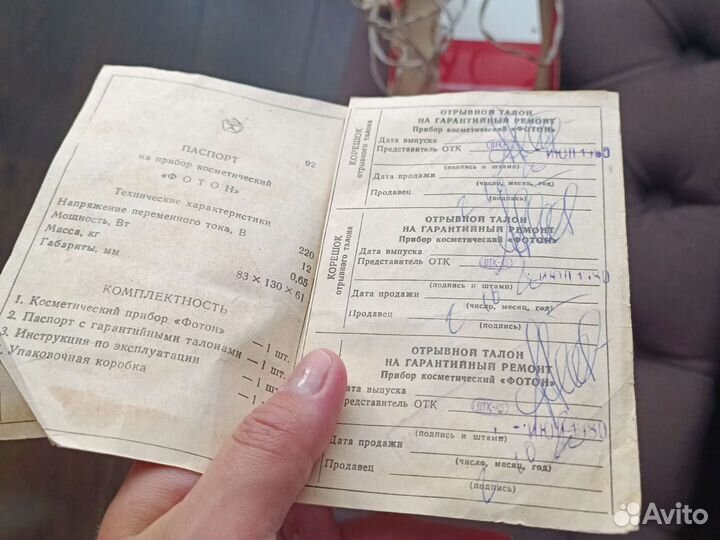 ПАСПОРТ
на прибор косметический
«ФОТОН»
92
Технические характеристики
Напряжение переменного тока, В 220
Мощность, Вт 12
Масса, кг 0,65
Габариты, мм 83 × 130 × 61
КОМПЛЕКТНОСТЬ
1. Косметический прибор «Фотон» — 1 шт.
2. Паспорт с гарантийными талонами — 1 шт.
3. Инструкция по эксплуатации — 1 шт.
Упаковочная коробка — 1
КОРЕШОК
отрывного талона
ОТРЫВНОЙ ТАЛОН
НА ГАРАНТИЙНЫЙ РЕМОНТ
Прибор косметический «ФОТОН»
Дата выпуска
Представитель ОТК
ИЮН 1980
(подпись и штамп)
Дата продажи
(число, месяц, год)
Продавец
(подпись)
КОРЕШОК
отрывного талона
ОТРЫВНОЙ ТАЛОН
НА ГАРАНТИЙНЫЙ РЕМОНТ
Прибор косметический «ФОТОН»
Дата выпуска
Представитель ОТК
ИЮН 1980
(подпись и штамп)
Дата продажи
(число, месяц, год)
Продавец
(подпись)
ОТРЫВНОЙ ТАЛОН
НА ГАРАНТИЙНЫЙ РЕМОНТ
Прибор косметический «ФОТОН»
Дата выпуска
Представитель ОТК
ИЮН 1980
(подпись и штамп)
Дата продажи
(число, месяц, год)
Продавец
(подпись)
Avito